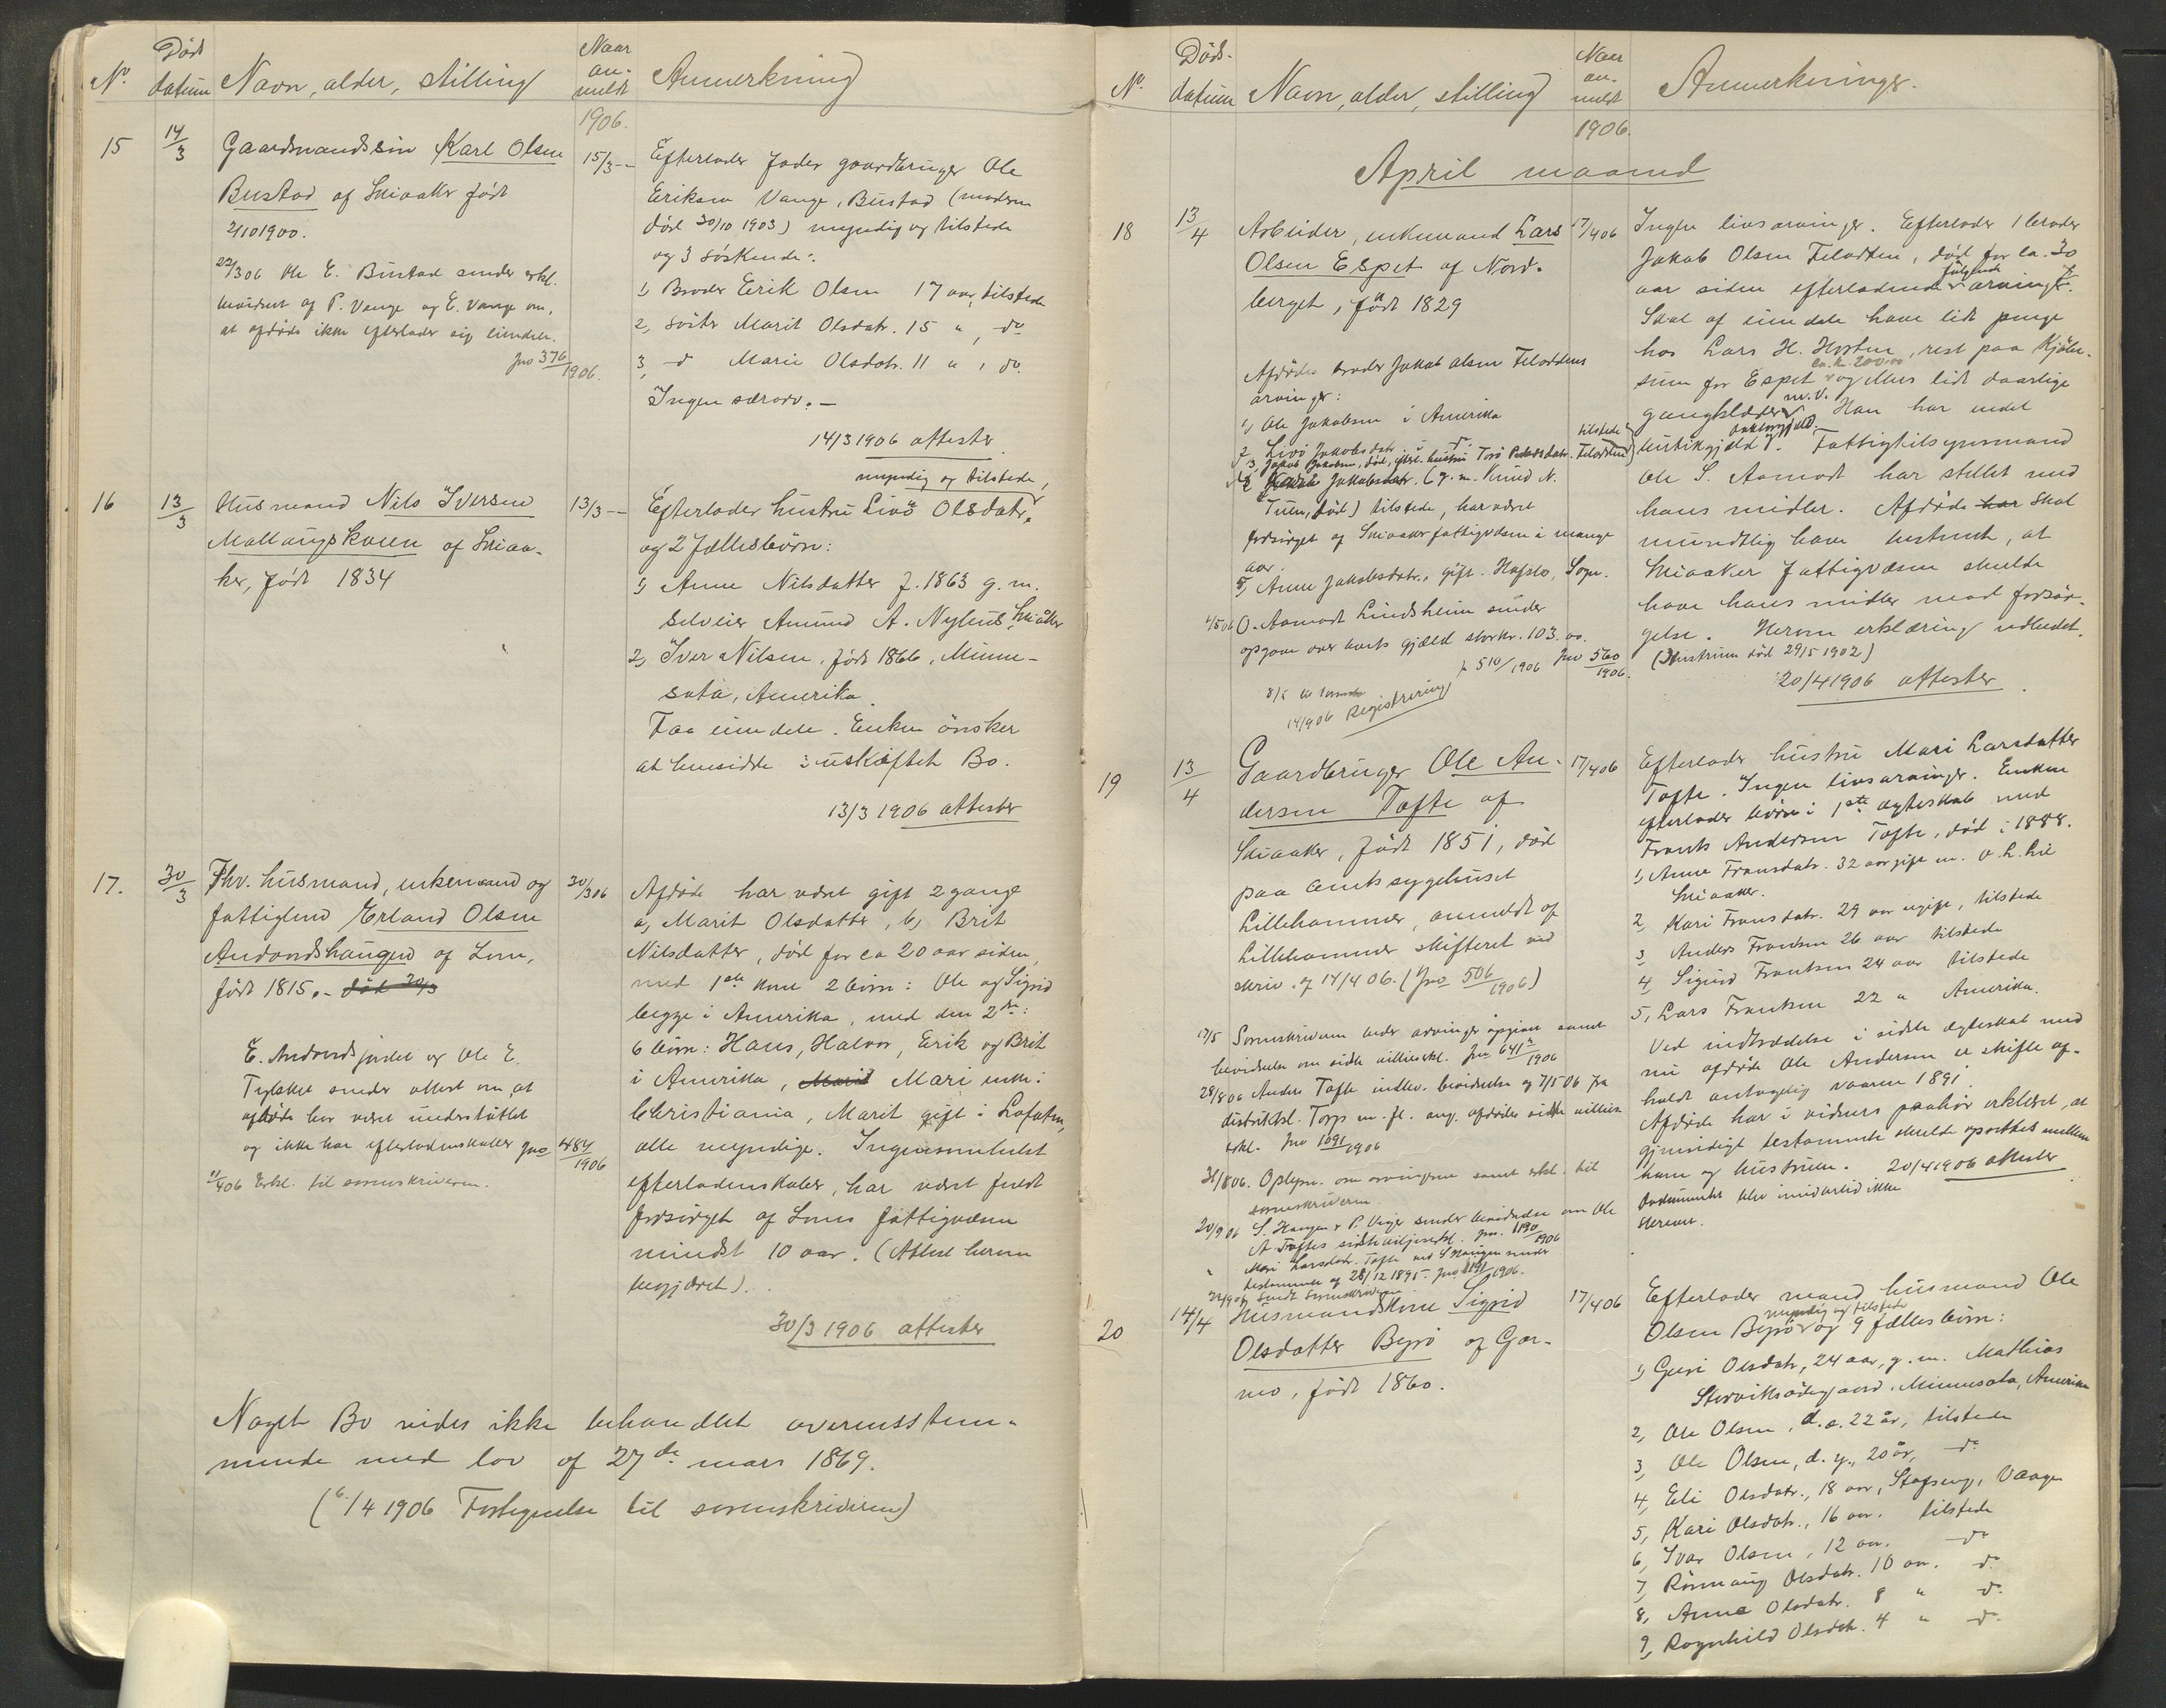 No. Død datum Navn, alder, stilling Naar anmeldt Anmerkning
1906.
15 14/3 Gaardmandssøn Karl Olsen
Bustad af Skiaaker født
2/10 1900.
22/3 06 Ole E. Bustad sender erkl.
bevidnet af P. Vange og E. Vange om,
at afdøde ikke efterlader sig eiendele.
jno 376/1906.
15/3 --
Efterlader fader gaardbruger Ole
Eriksen Vange, Bustad (moderen
død 30/10 1903) myndig og tilstede
og 3 søskende:
1) Broder Erik Olsen 17 aar, tilstede
2, søster Marit Olsdatr. 15 " , do
3, -d Marie Olsdatr. 11 " , do.
Ingen særarv. –
14/3 1906 attester
16 13/3 Husmand Nils Iversen
Mallaugskaien af Skiaa-
ker, født 1834
13/3 --
myndig og tilstede,
Efterlader hustru Livø Olsdatr.
og 2 fællesbørn:
1) Anne Nilsdatter f. 1863 g. m.
selveier Amund A. Nyhus, Skiåker
2, Iver Nilsen, født 1866, Minne-
sota, Amerika
Faa eiendele. Enken ønsker
at hensidde i uskiftet Bo.
13/3 1906 attester
17. 30/3 Fhv. husmand, enkemand og
fattiglem Erland Olsen
Andvordshaugen af Lom,
født 1815. – død 30/3
E. Andvordsjordet og Ole E.
sender attest om, at
afdøde har været understøttet
og ikke har efterladenskaber jno 484/1906
11/4 06 Erkl. til sorenskriveren.
30/3 06
Afdøde har været gift 2 gange
a, Marit Olsdatter, b, Brit
Nilsdatter, død for ca 20 aar siden,
med 1ste kone 2 børn: Ole og Sigrid
begge i Amerika, med den 2den:
6 børn: Hans, Halvor, Erik og Brit
i Amerika, Marit Mari enke i
Christiania, Marit gift i Lofoten,
alle myndige. Ingensomhelst
efterladenskaber, har været fuldt
forsørget af Loms fattigvæsen
mindst 10 aar. (Attest herom
begjæret).
30/3 1906 attester
Noget Bo vides ikke behandlet overensstem-
mende med lov af 27de mars 1869.
(6/4 1906 Fortegnelse til sorenskriveren)
No. Døds- datum Navn, alder, stilling Naar anmeldt Anmerkninger.
1906.
April maaned
18 13/4 Arbeider, enkemand Lars
Olsen Espet af Nord-
berget, født 1829
Afdødes broder Jakob Olsen Feloddens
arvinger:
1) Ole Jakobsen i Amerika
2 Livø Jakobsdatr. i do.
3, Jakob Jakobsen, død, efterl. hustru Torø Pedersdatr. Felodden tilstede
Jakobsdatr. (g. m. Knud N.
Tuen, død) tilstede, har været
forsørget af Skiaaker fattigvæsen i mange
aar.
5, Anne Jakobsdatr., gift. Hafslo, Sogn.
4/5 06 O. Aamodt Lindsheim sender
opgave over boets gjæld stor kr. 103.00.
jno 560/1906.
p 510/1906
8/5 til
14/9 06 Registrering
17/4 06
Ingen livsarvinger. Efterlader 1 broder
Jakob Olsen Felodden, død for ca. 30
aar siden efterladende følgende arvinger.
Skal af eiendele have lidt penge
hos Lars H. Hosten, rest paa kjøbe-
sum for Espet ca. kr. 200.00 og ellers lidt daarlige
gangklæder m.v. Han har endel
butikgjæld. Fattigtilsynsmand
Ole S. Aamodt har stellet med
hans midler. Afdøde har skal
mundtlig have bestemt, at
Skiaaker fattigvæsen skulde
have hans midler mod forsør-
gelse. Herom erklæring udbedet.
(Hustruen død 29/5 1902)
20/4 1906 attester
19 13/4 Gaardbruger Ole An-
dersen Tofte af
Skiaaker, født 1851, død
paa amtssygehuset
Lillehammer, anmeldt af
Lillehammer skifteret ved
skriv. af 14/4 06. (jno 506/1906)
17/5 Sorenskriveren beder arvinger opgivet samt
bevidnelse om sidste villieserkl. jno 641/1906
28/8 06 Anders Tofte indlev. bevidnelse af 7/5 06 fra
distriktsl. Torp m. fl. ang. afdødes sidste villies
erkl. jno 1091/1906
31/8 06. Oplysn. om arvingerne samt erkl. til
sorenskriveren.
20/9 06 S. Haugen & P. sender bevidnelse om Ole
A. Toftes sidste viljeserkl. jno. 1190/1906
" Mari Larsdatr. Tofte ved S Haugen sender
testamente af 28/12 1895. jno 1191/1906.
22/9 06 Sendt Sorenskriveren
17/4 06
Efterlader hustru Mari Larsdatter
Tofte. Ingen livsarvinger. Enken
efterlader børn i 1ste ægteskab med
Frants Andersen Tofte, død i 1888.
1) Anne Fransdatr. 32 aar gift m. O. L. Lie
Skiaaker.
2, Kari Fransdatr. 29 aar ugift, tilstede
3 Anders Frantsen 26 aar tilstede
4, Sigurd Frantsen 24 aar tilstede
5, Lars Frantsen 22 " Amerika.
Ved indtrædelse i sidste ægteskab med
nu afdøde Ole Andersen er skifte af-
holdt antagelig vaaren 1891.
Afdøde har i vidners paahør erklæret, at
gjensidigt testamente skulde oprettes mellem
ham og hustruen. 20/4 1906 attester
Dokumentet blev imidlertid ikke
skrevet.
20 14/4 Husmandskone Sigrid
Olsdatter Bepø af Gar-
mo, født 1860.
17/4 06
Efterlader mand husmand Ole
Olsen Bepø myndig og tilstede og 9 fællesbørn:
1) Guri Olsdatr., 24 aar, g. m. Mathias
Storviksødegaard, Minnesota, Amerika
2, Ole Olsen, d. e. 22 år, tilstede
3, Ole Olsen, d. y., 20 år, do
4, Eli Olsdatr., 18 aar, Vaage
5, Kari Olsdatr., 16 aar. tilstede
6, Ivar Olsen, 12 aar. do
7, Rønnaug Olsdatr. 10 aar. do.
8, Anne Olsdatr. 8 " do.
9, Ragnhild Olsdatr. 4 " do.